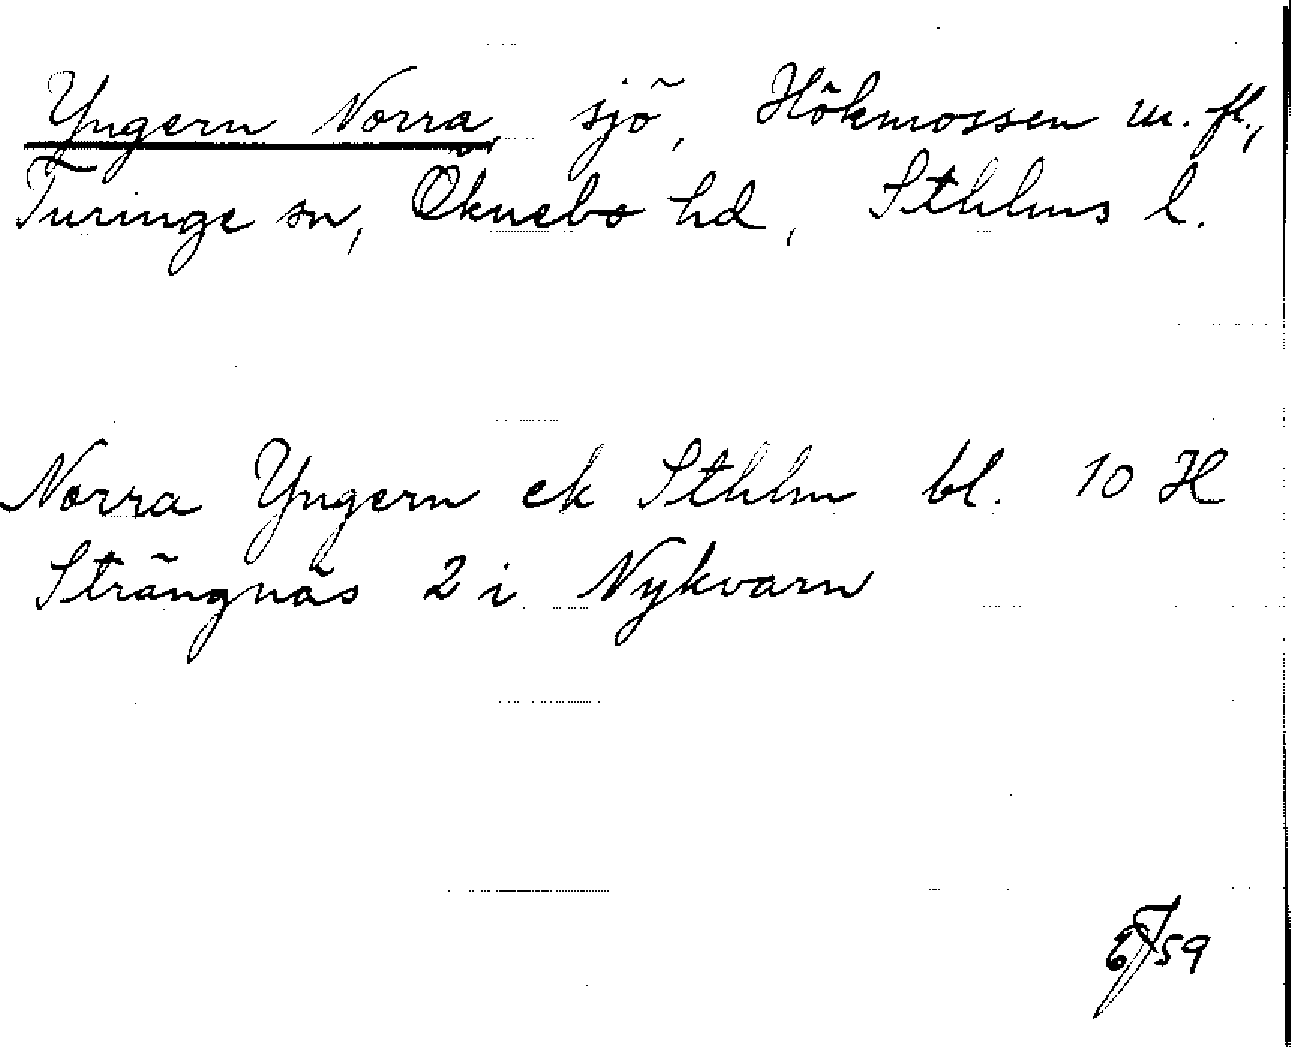 Yngern Norra, sjö, Hökmossen m. fl.,
Turinge sn, Öknebo hd, Sthlms l.
Norra Yngern ek Sthlm bl. 10 H
Strängnäs 2 i Nykvarn
59